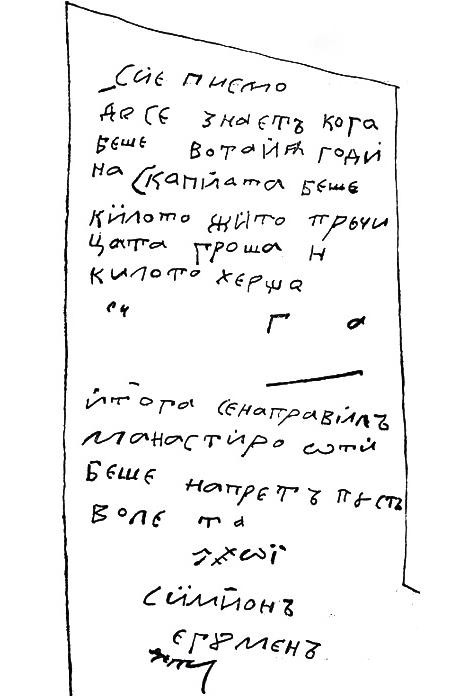 Сйе писмо
да се знаетъ кога
беше вотайѧ годй
на скапйата беше
кйлото жйто пръчи
цата гроша н
килото херша
г а
йтога сенаправилъ
манастиро ѡтй
беше напретъ пꙋстъ
воле та
҂аѡї
Сймйонъ
егꙋменъ